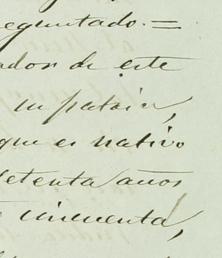 reguntado. =
ador de este
su patria,
que es nativo
setenta años
cincuenta,